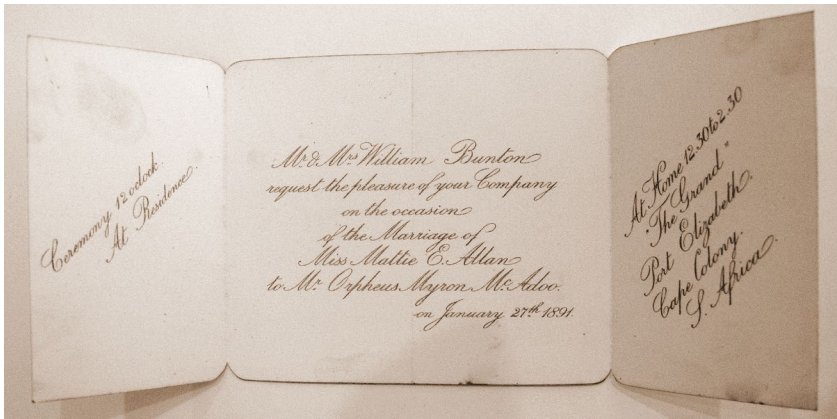 Ceremony 12 oclock.
At Residence.
Mr. & Mrs. William Bunton
request the pleasure of your Company
on the occasion
of the Marriage of
Miss Mattie E. Allan
to Mr. Orpheus Myron McAdoo.
on January 27th 1891.
At Home 12.30 to 2.30
"The Grand"
Port Elizabeth.
Cape Colony.
S. Africa.